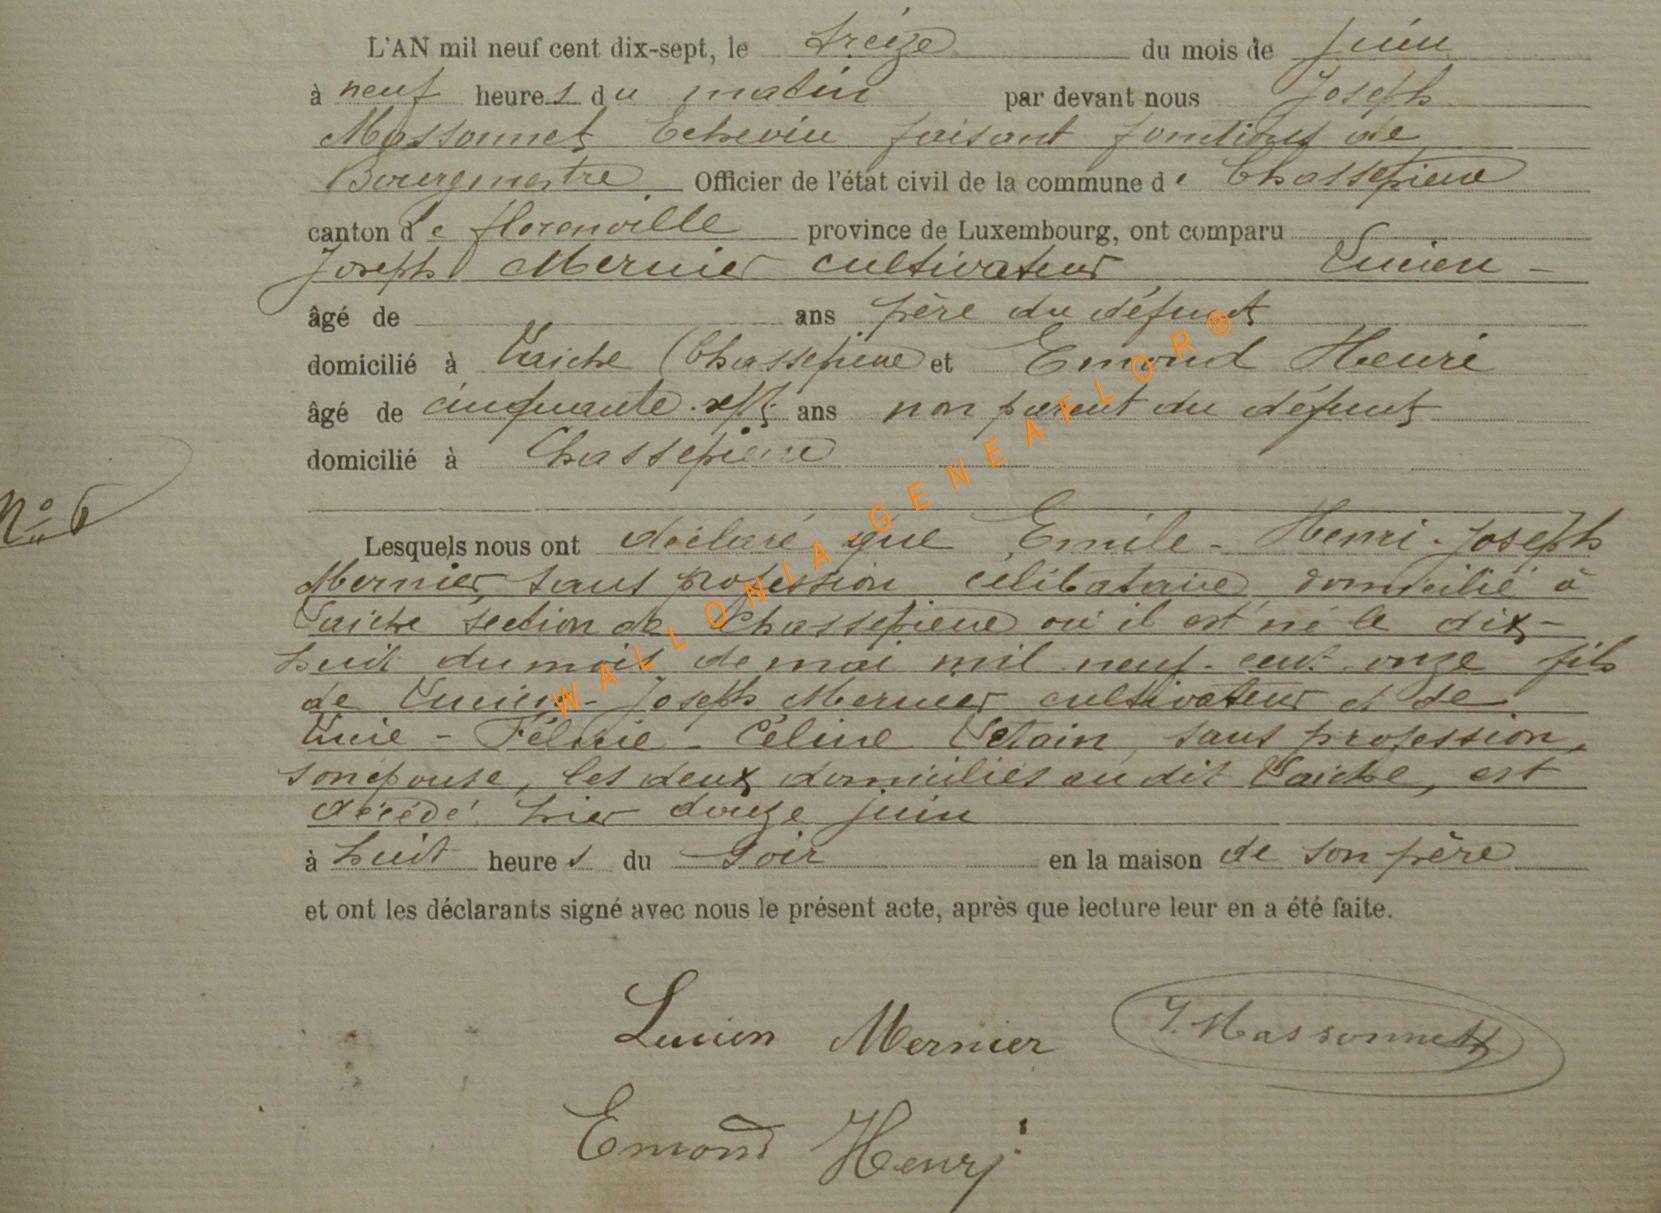 L'AN mil neuf cent dix-sept, le treize du mois de juin
à neuf heures du matin par devant nous Joseph
Massonnet Echevin faisant fonctions de
Bourgmestre Officier de l'état civil de la commune de Chassepierre
canton de florenville province de Luxembourg, ont comparu
Joseph Mernier cultivateur Lucien -
âgé de ans père du défunt
domicilié à Laiche (Chassepierre et Emond Henri
âgé de cinquante-sept ans non parent du défunt
domicilié à Chassepierre
No 6
Lesquels nous ont déclaré que Emile - Henri - Joseph
Mernier, sans profession, célibataire domicilié à
Laiche section de Chassepierre où il est né le dix-
huit du mois de mai mil neuf-cent-onze fils
de Lucien-Joseph Mernier cultivateur et de
Lucie - Félicie - Céline sans profession,
son épouse, les deux domiciliés au dit Laiche, est
décédé hier douze juin
à huit heures du soir en la maison de son père
et ont les déclarants signé avec nous le présent acte, après que lecture leur en a été faite.
Lucien Mernier J. Massonnet
Emond Henri
WALLONIA-GENEAFLOR®